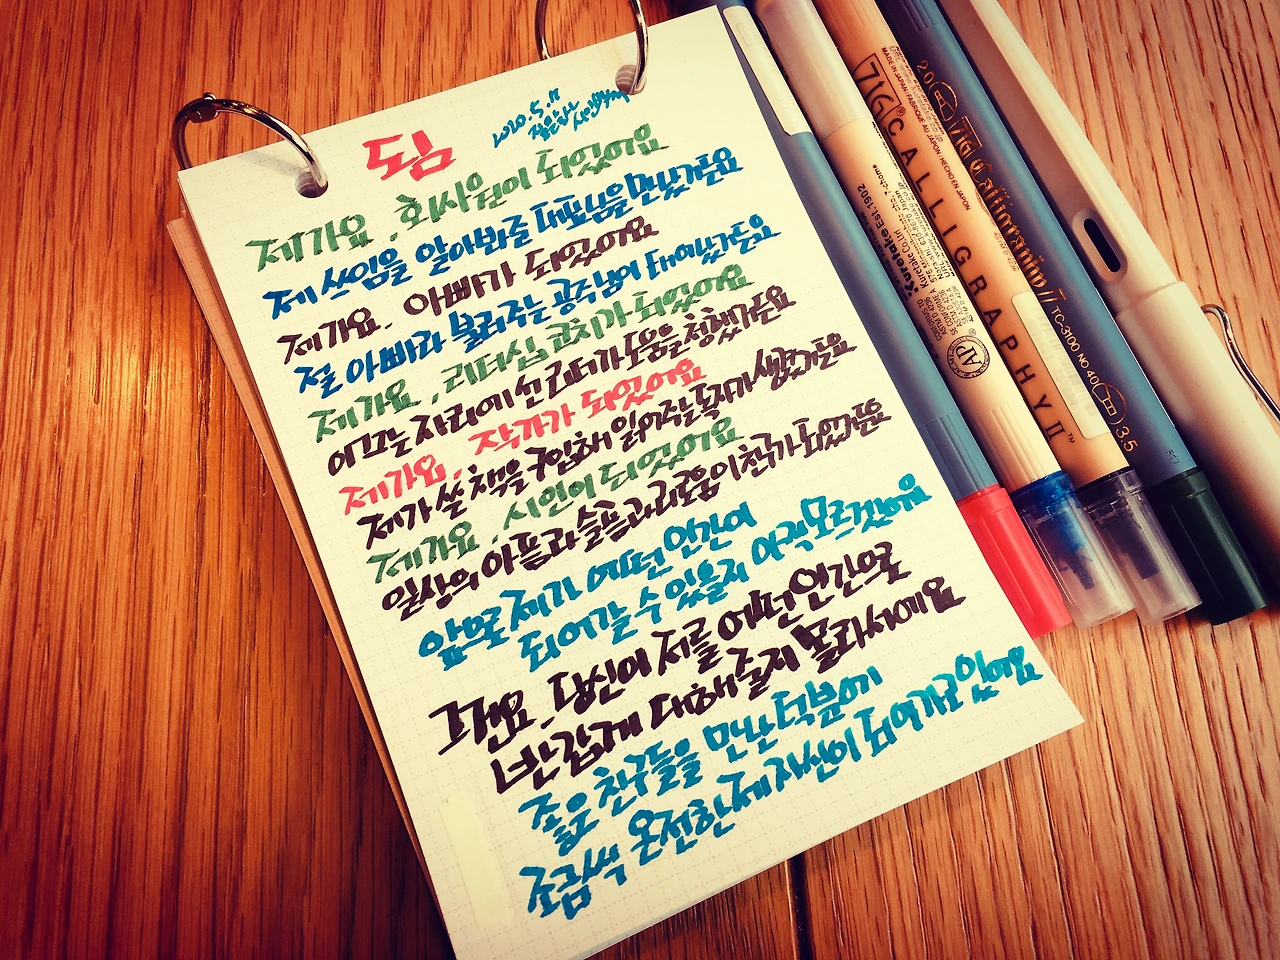 됨
2020.5.11
제가요, 회사원이 되었어요
제 쓰임을 알아봐줄 대표님을 만났거든요
제가요, 아빠가 되었어요
절 아빠라 불러주는 공주님이 태어났거든요
제가요, 리더십 코치가 되었어요
이끄는 자리에 선 리더가 도움을 청했거든요
제가요, 작가가 되었어요
제가 쓴 책을 구입해 읽어주는 독자가 생겼거든요
제가요, 시인이 되었어요
일상의 아픔과 슬픔과 외로움이 친구가 되었거든요
앞으로 제가 어떤 인간이
되어갈 수 있을지 아직 모르겠어요
근데요, 당신이 저를 어떤 인간으로
반갑게 대해줄지 몰라서예요
좋은 친구들을 만난 덕분에
조금씩 온전한 제 자신이 되어가고 있어요
ZIG
CALLIGRAPHY II™
MADE IN JAPAN / FABRIQUE AU JAPON / HECHO EN JAPON
Kuretake Est. 1902
Kuretake Co., Ltd.
AP
2.0
ZIG Calligraphy II / TC-3100 NO 40
3.5